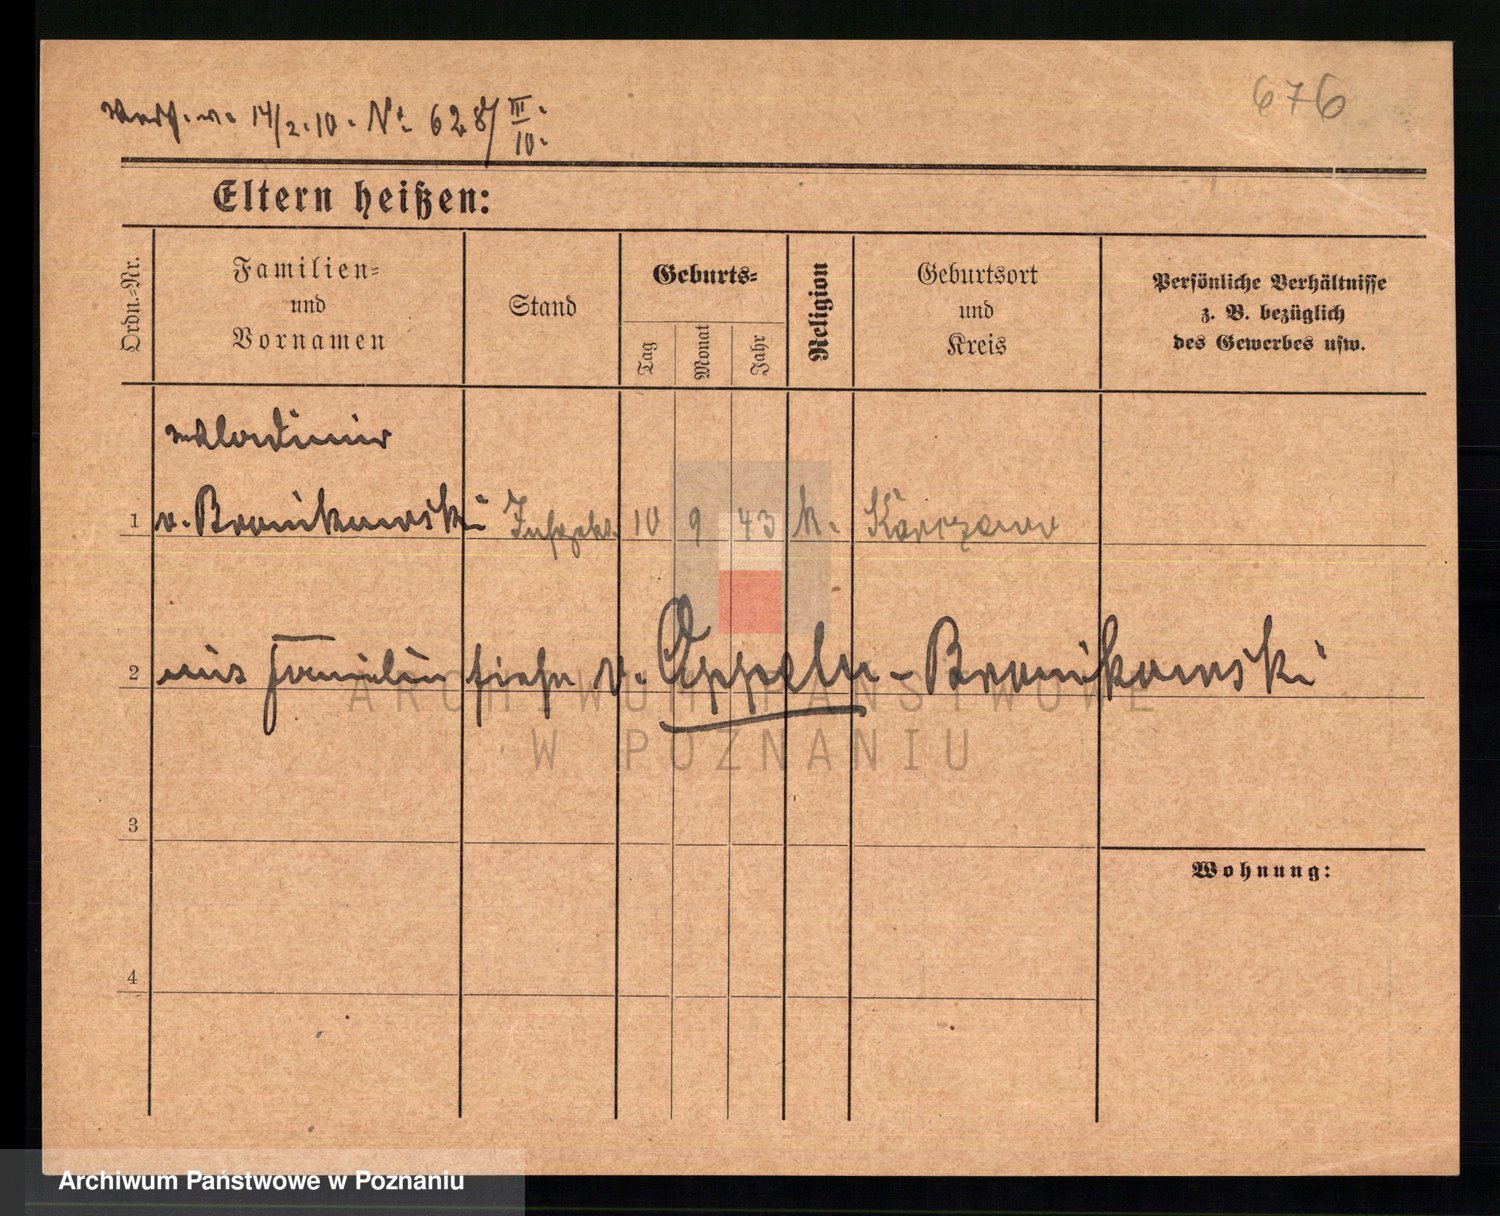 Verf. v. 14/2.10. Nr. 628/III.10.
676
Eltern heißen:
Ordn.-Nr.
Familien- und Vornamen
Stand
Geburts-
Tag
Monat
Jahr
Religion
Geburtsort und Kreis
Persönliche Verhältnisse
z. B. bezüglich
des Gewerbes usw.
Wladimir
1 v. Bronikowski 10 9 43 k.
2 aus Familie siehe v. Oppeln-Bronikowski
ARCHIWUM PAŃSTWOWE
W POZNANIU
3
Wohnung:
4
Archiwum Państwowe w Poznaniu